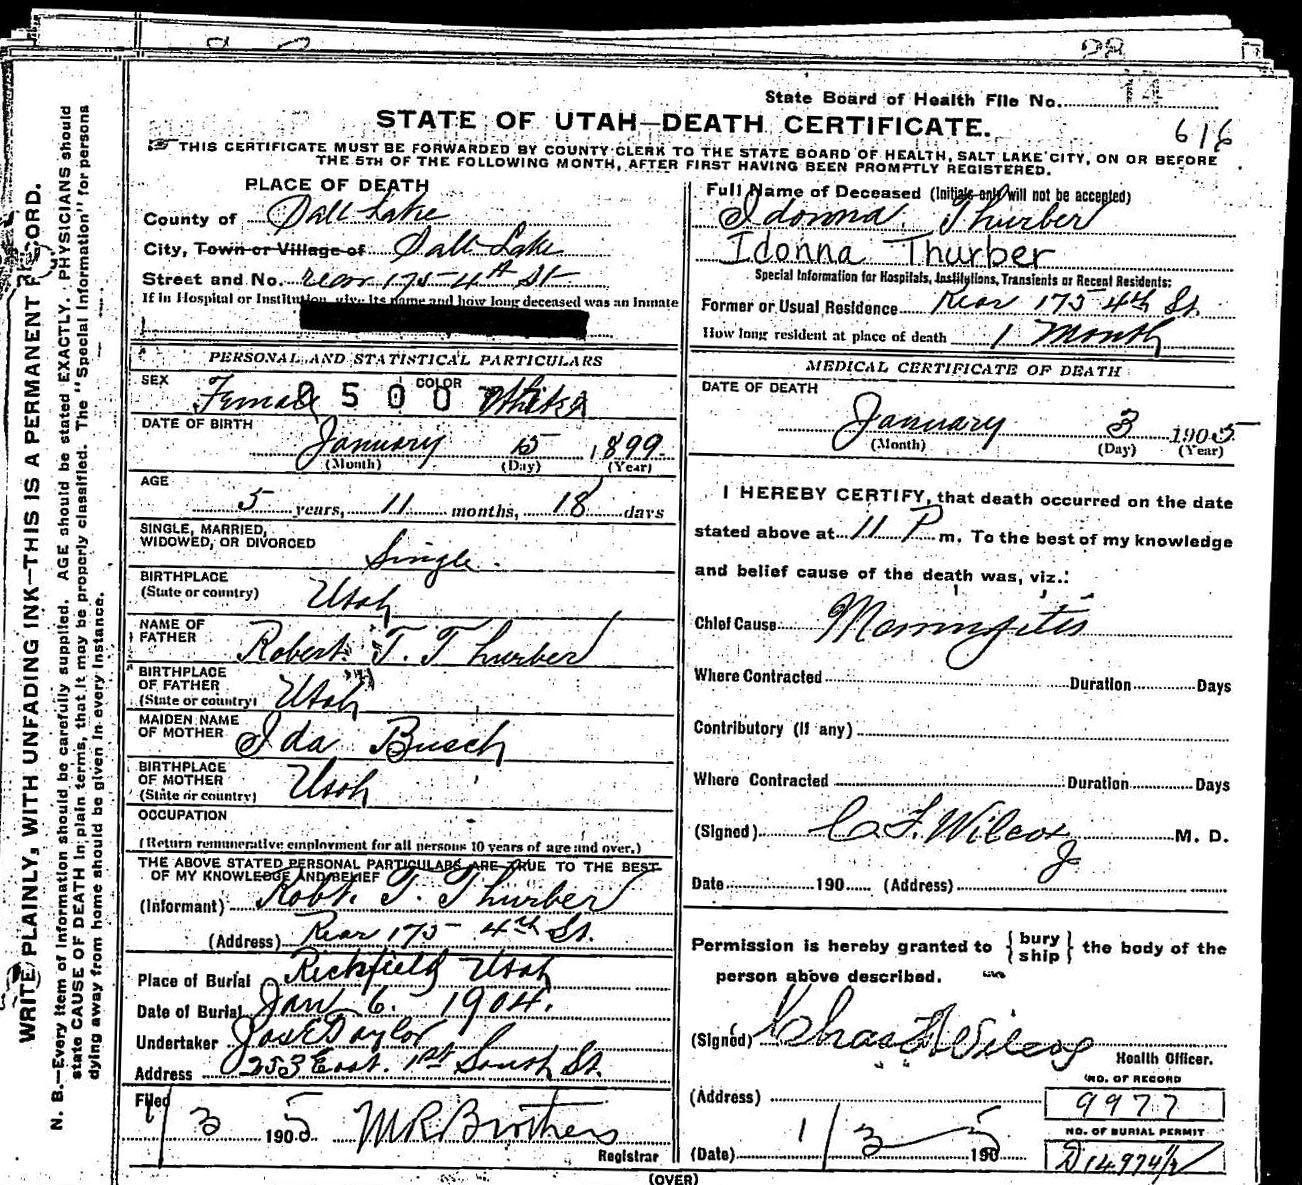 State Board of Health File No. 14
STATE OF UTAH—DEATH CERTIFICATE.
616
THIS CERTIFICATE MUST BE FORWARDED BY COUNTY CLERK TO THE STATE BOARD OF HEALTH, SALT LAKE CITY, ON OR BEFORE
THE 5TH OF THE FOLLOWING MONTH, AFTER FIRST HAVING BEEN PROMPTLY REGISTERED.
WRITE PLAINLY, WITH UNFADING INK—THIS IS A PERMANENT RECORD.
N. B.—Every item of information should be carefully supplied. AGE should be stated EXACTLY. PHYSICIANS should
state CAUSE OF DEATH in plain terms, that it may be properly classified. The "Special Information" for persons
dying away from home should be given in every instance.
PLACE OF DEATH
County of Salt Lake
City, Town or Village of Salt Lake
Street and No. rear 175 4th St
If in Hospital or Institution, give its name and how long deceased was an inmate
PERSONAL AND STATISTICAL PARTICULARS
SEX Female COLOR White
0500
DATE OF BIRTH
January 15 1899
(Month) (Day) (Year)
AGE
5 years, 11 months, 18 days
SINGLE, MARRIED,
WIDOWED, OR DIVORCED
Single.
BIRTHPLACE
(State or country) Utah
NAME OF
FATHER Robert T. Thurber
BIRTHPLACE
OF FATHER
(State or country) Utah
MAIDEN NAME
OF MOTHER Ida Busch
BIRTHPLACE
OF MOTHER
(State or country) Utah
OCCUPATION
(Return remunerative employment for all persons 10 years of age and over.)
THE ABOVE STATED PERSONAL PARTICULARS ARE TRUE TO THE BEST
OF MY KNOWLEDGE AND BELIEF
(Informant) Robt. T. Thurber
(Address) Rear 175 4th St.
Place of Burial Richfield Utah
Date of Burial Jan 6. 1904.
Undertaker Jos E Taylor
Address 253 East. 1st South St.
Filed
1/3 1905 M R Brothers
Registrar
Full Name of Deceased (Initials only will not be accepted)
Idonna Thurber
Idonna Thurber
Special Information for Hospitals, Institutions, Transients or Recent Residents:
Former or Usual Residence Rear 175 4th St.
How long resident at place of death 1 Month
MEDICAL CERTIFICATE OF DEATH
DATE OF DEATH
January 3 1905
(Month) (Day) (Year)
I HEREBY CERTIFY, that death occurred on the date
stated above at 11 P m. To the best of my knowledge
and belief cause of the death was, viz.:
Chief Cause Menningitis
Where Contracted Duration Days
Contributory (If any)
Where Contracted Duration Days
(Signed) C. F. Wilcox M. D.
Date 190 (Address)
Permission is hereby granted to {bury
ship} the body of the
person above described.
(Signed) Chas F Wilcox
Health Officer.
NO. OF RECORD
(Address)
9977
NO. OF BURIAL PERMIT
(Date) 1/3 1905
D 14974 1/2
(OVER)